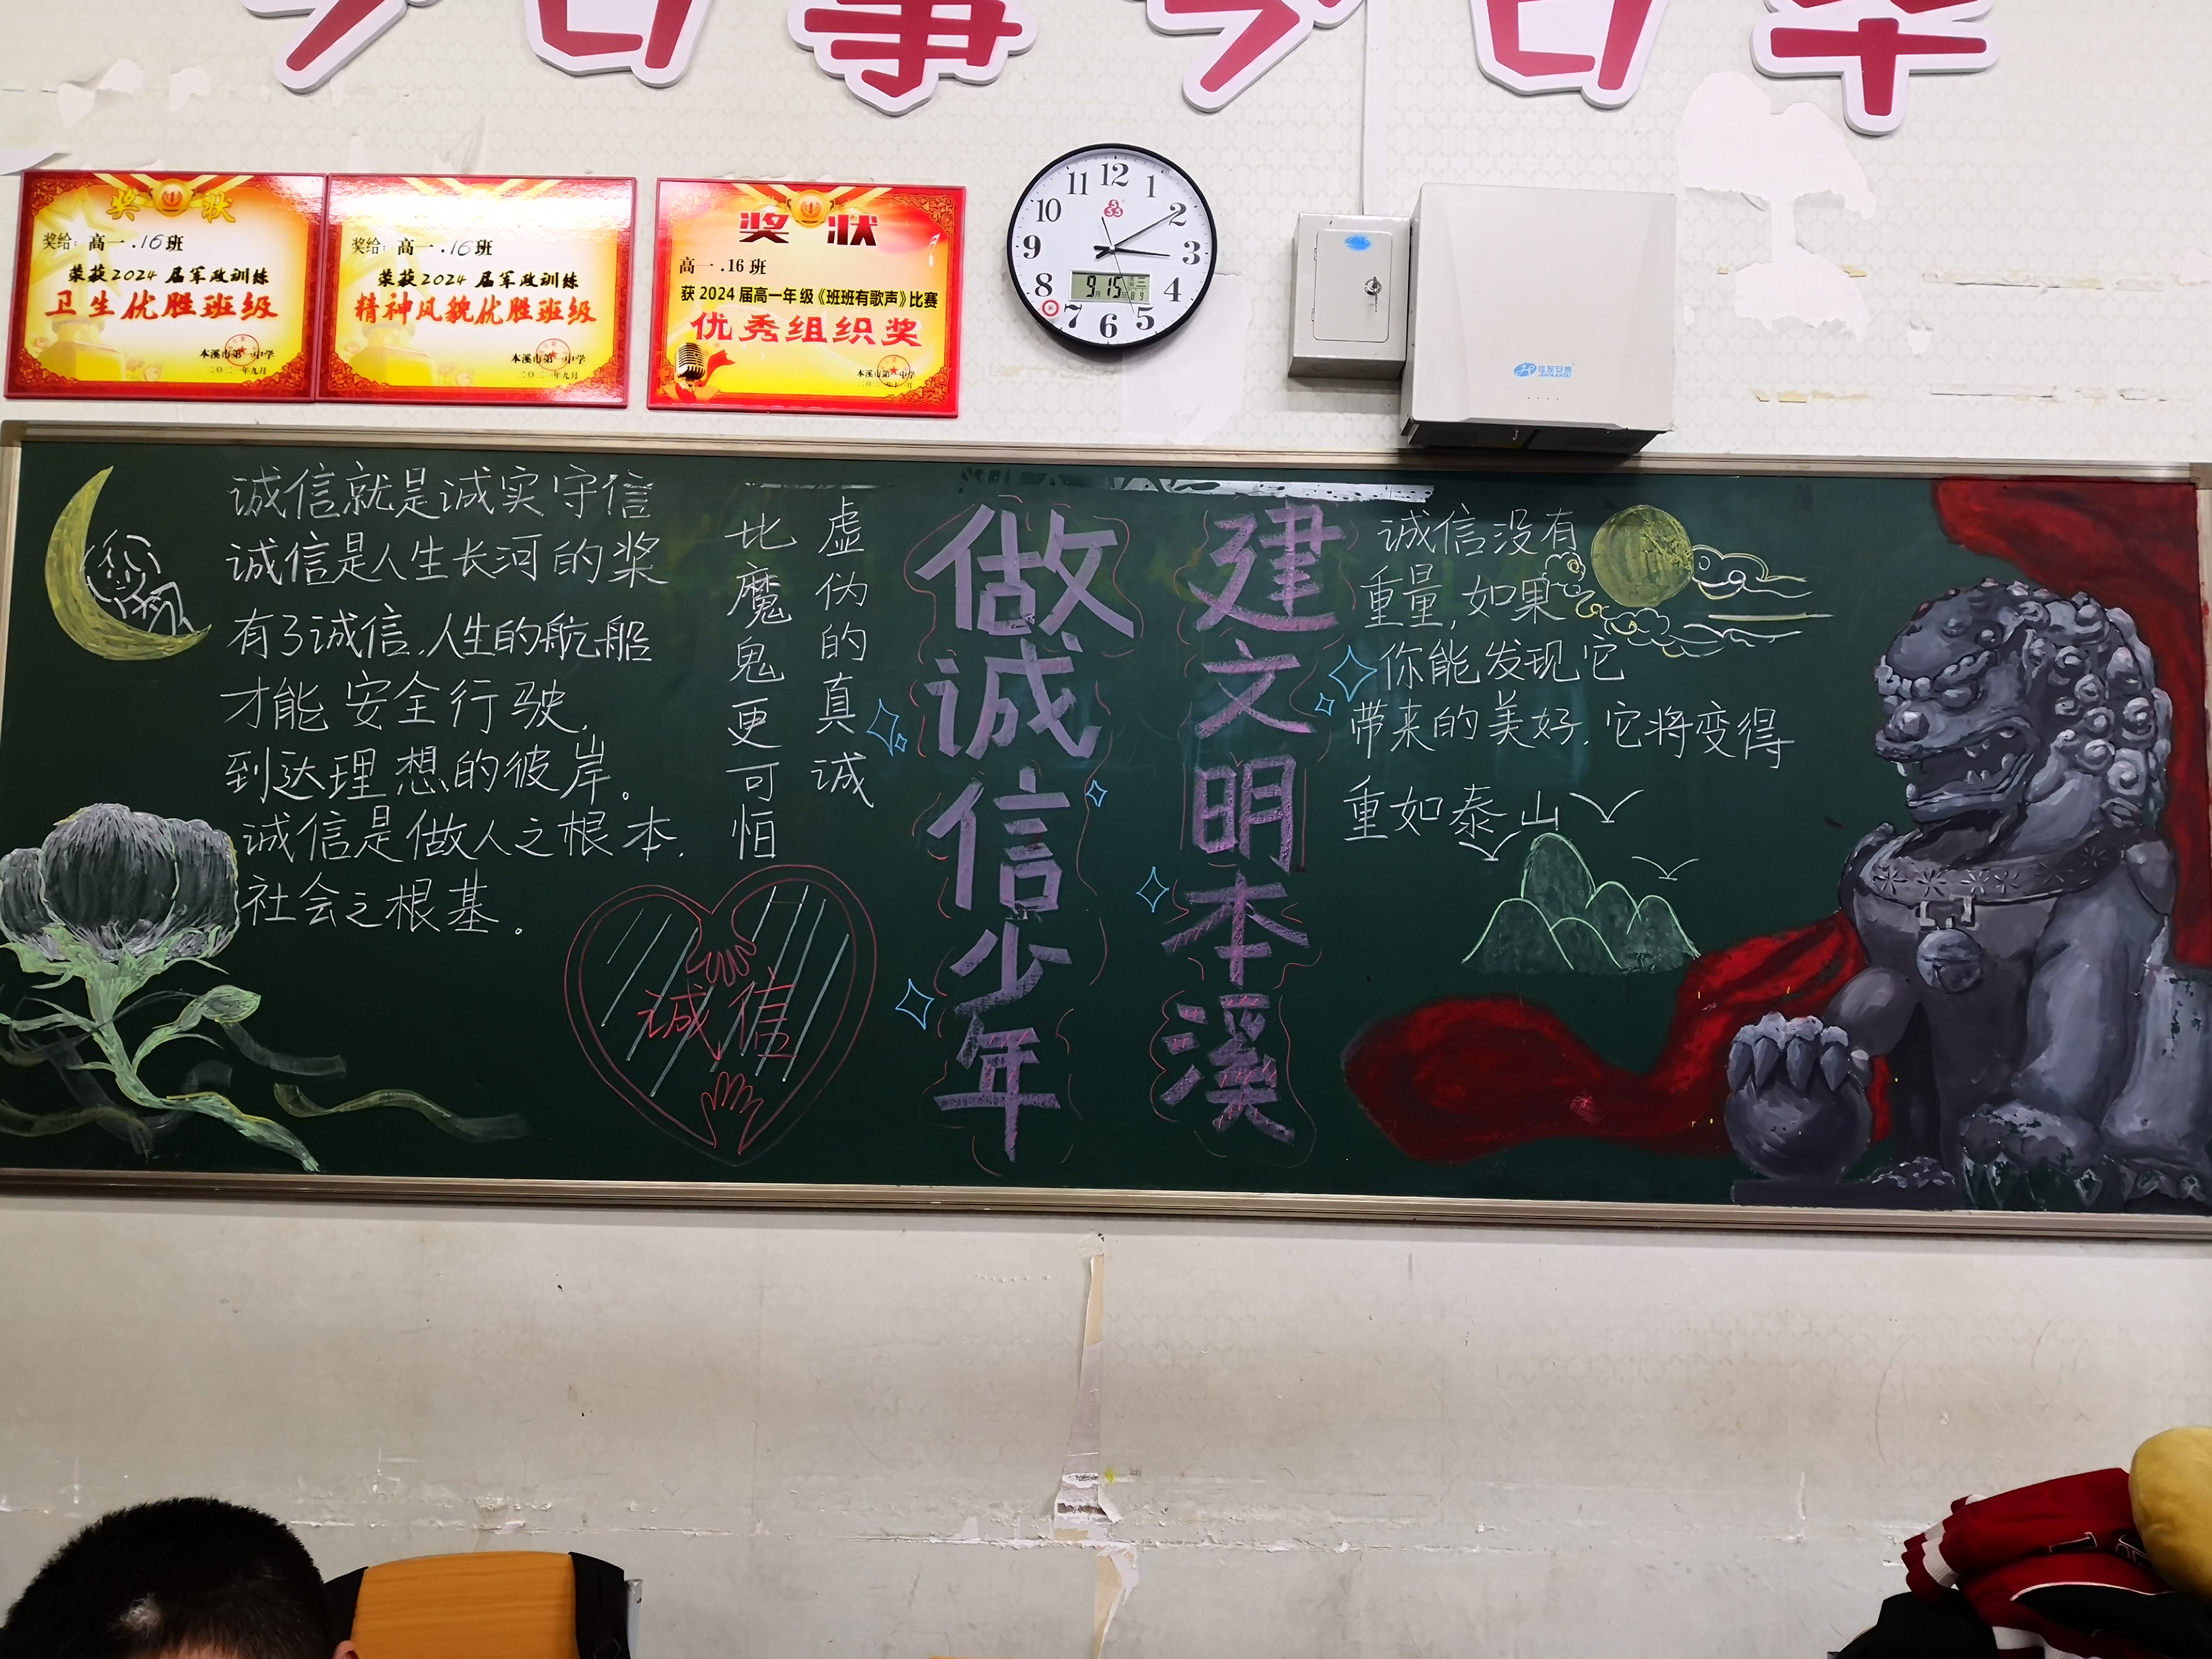 今日事今日毕
奖状
奖给：高一.16班
荣获2024届军政训练
卫生优胜班级
本溪市第一中学
二〇二一年九月
奖给：高一.16班
荣获2024届军政训练
精神风貌优胜班级
本溪市第一中学
二〇二一年九月
奖状
高一.16班
获2024届高一年级《班班有歌声》比赛
优秀组织奖
本溪市第一中学
12
1
2
3
4
5
6
7
8
9
10
11
555
9月15日
三
佳发安泰
诚信就是诚实守信
诚信是人生长河的桨
有了诚信,人生的航船
才能安全行驶,
到达理想的彼岸。
诚信是做人之根本,
社会之根基。
虚伪的真诚
比魔鬼更可怕
诚信
建文明本溪
做诚信少年
诚信没有
重量,如果
你能发现它
带来的美好,它将变得
重如泰山